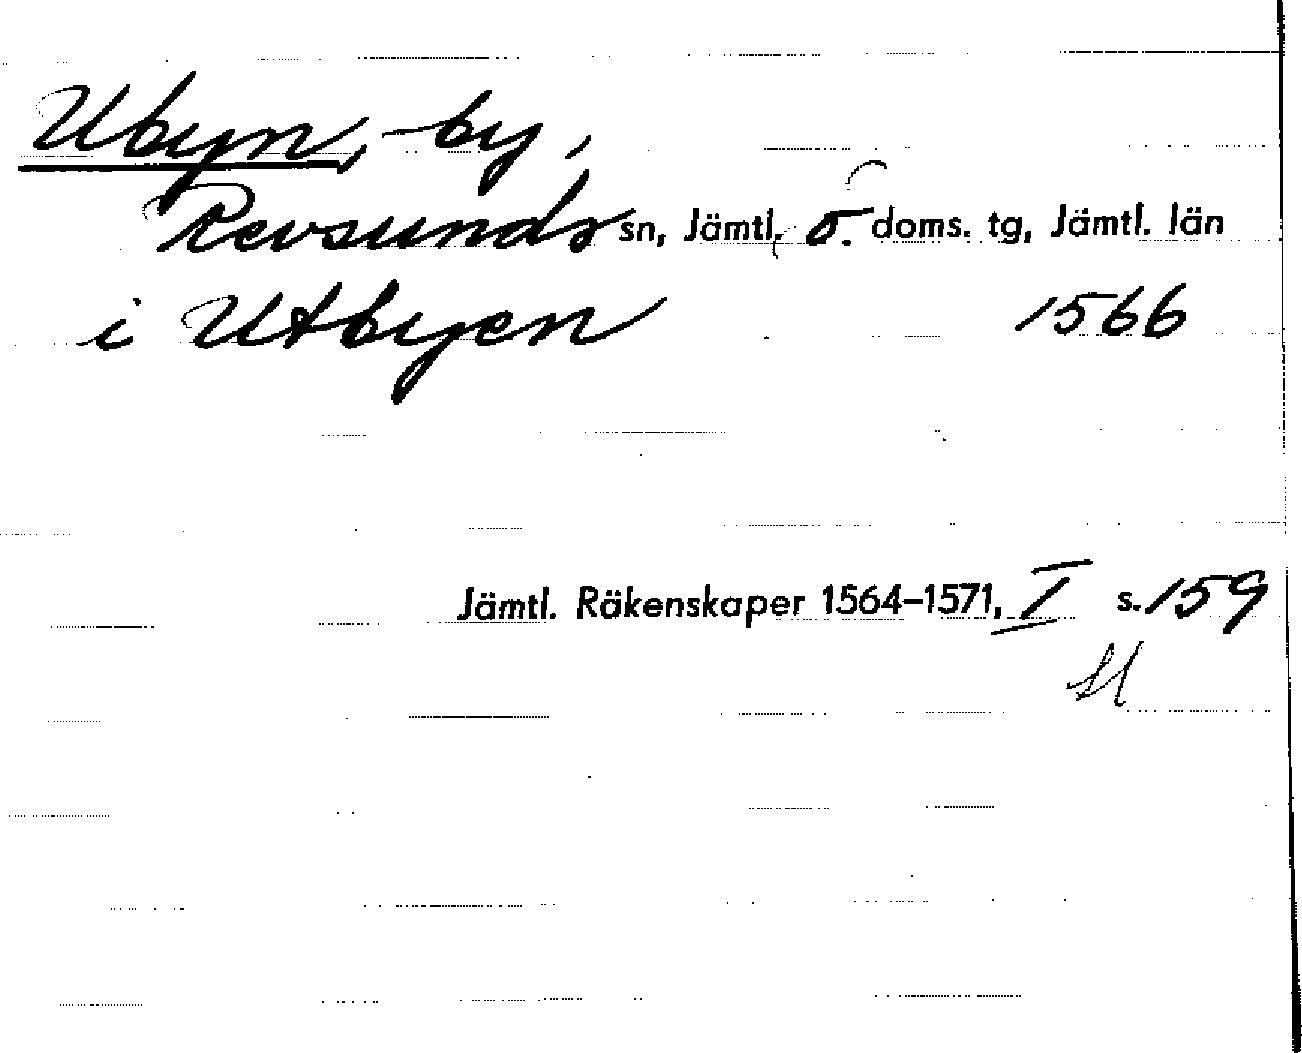 Ubyn, by,
Revsunds sn, Jämtl. ö. doms. tg, Jämtl. län
i Utbyen 1566
Jämtl. Räkenskaper 1564-1571, I s. 159